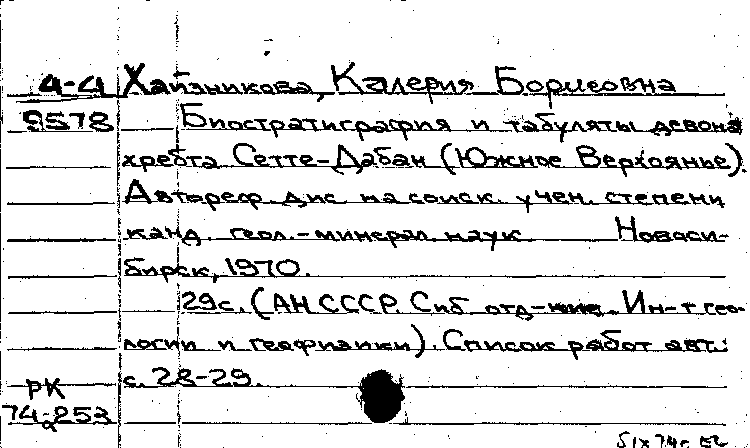 4-4 Хайзникова, Калерия Борисовна
9578 Биостратиграфия и табуляты девона
хребта Сетте-Дабан (Южное Верхоянье).
Автореф. дис. на соиск. учен. степени
канд. геол.-минерал. наук. Новоси-
бирск, 1970.
29с. (АН СССР. Сиб. отд-ние. Ин-т гео-
логии и геофизики). Список работ авт.:
с. 28-29.
РК
74-253